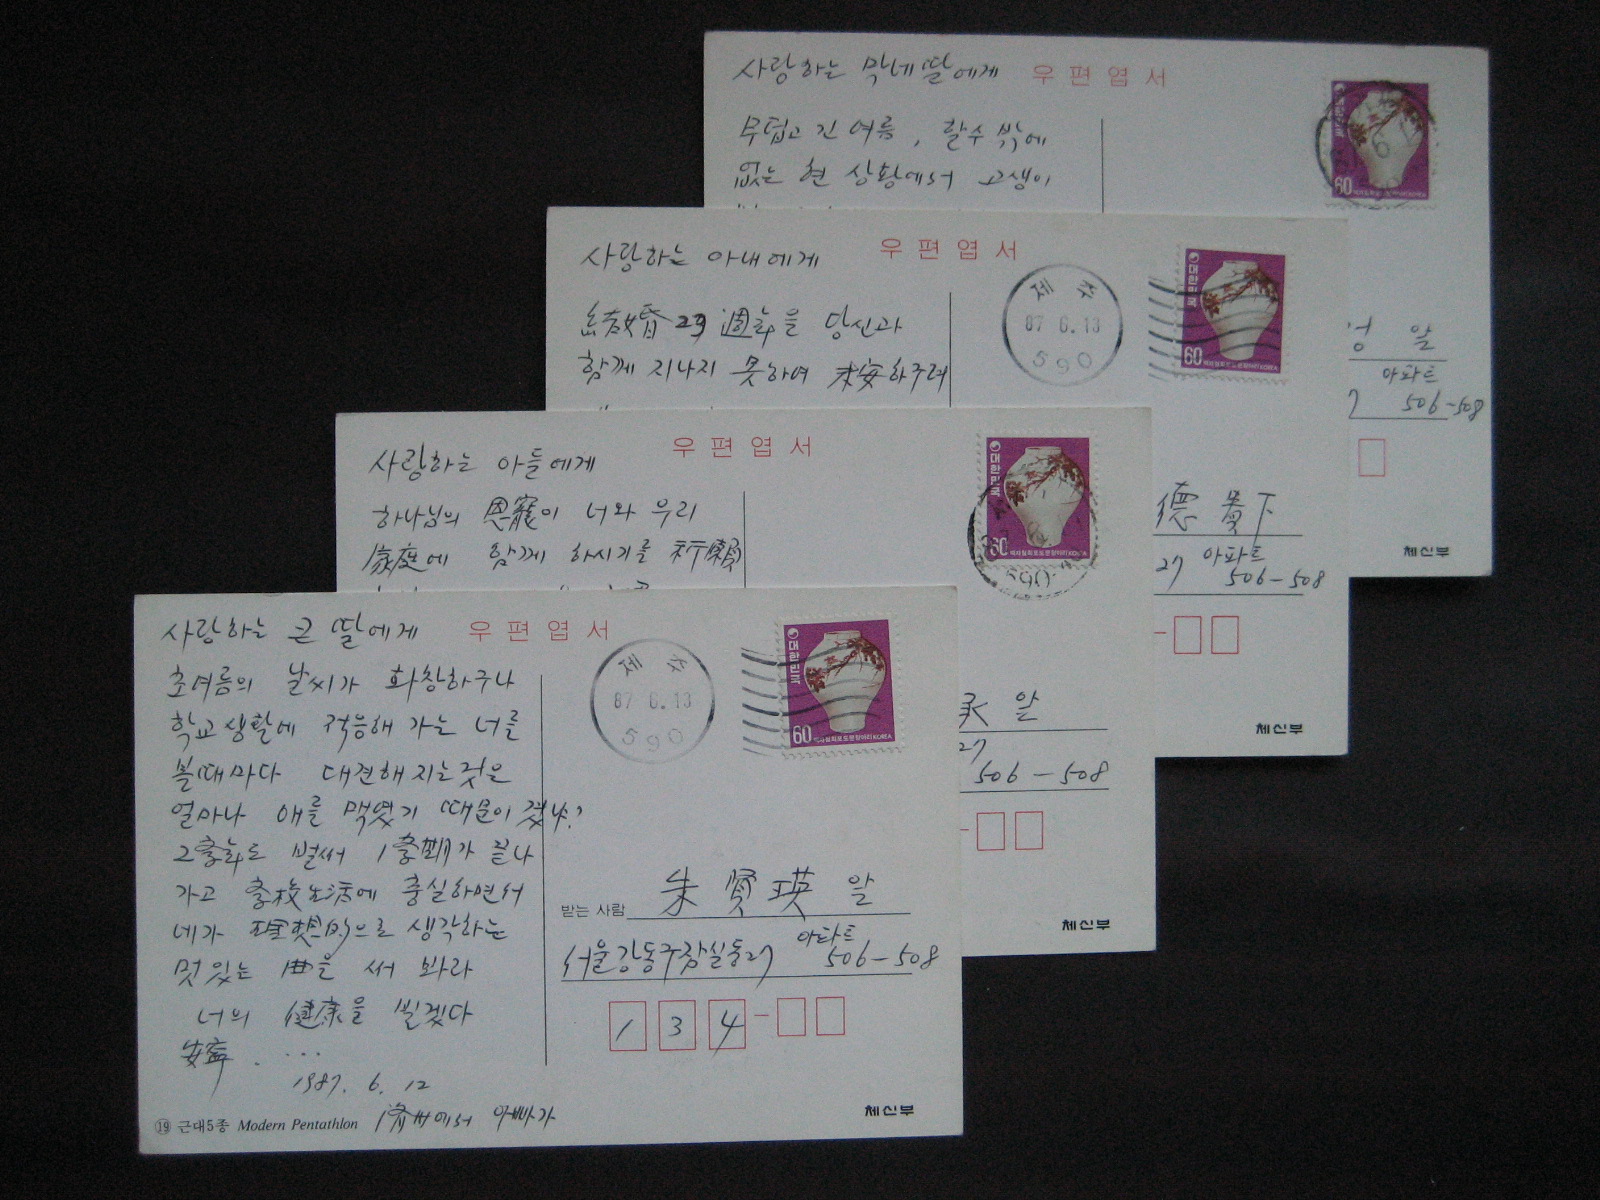 사랑하는 막네딸에게
우편엽서
무덥고 긴 여름, 할수밖에
없는 현 상황에서 고생이
대한민국
60
KOREA
앞
아파트
506-508
체신부
사랑하는 아내에게
우편엽서
結婚 23 週年을 당신과
함께 지나지 못하여 未安하구려
제주
87 6.13
590
대한민국
60
백자철화포도문항아리 KOREA
德 貴 下
27 아파트 506-508
체신부
사랑하는 아들에게
우편엽서
하나님의 恩寵이 너와 우리
家庭에 함께 하시기를 祈願
대한민국
60
백자철화포도문항아리 KOREA
590
承 앞
27 506-508
체신부
사랑하는 큰 딸에게
우편엽서
초여름의 날씨가 화창하구나
학교생활에 적응해 가는 너를
볼때마다 대견해 지는것은
얼마나 애를 먹였기 때문이겠냐?
2學年도 벌써 1學期가 끝나
가고 學校生活에 충실하면서
네가 理想的으로 생각하는
멋있는 曲을 써 봐라
너의 健康을 빌겠다
安寧. ...
1987. 6. 12
濟州에서 아빠가
⑲ 근대5종 Modern Pentathlon
제주
87 6.13
590
대한민국
60
백자철화포도문항아리 KOREA
받는 사람 朱 賢 瑛 앞
서울강동구잠실동27 아파트 506-508
134-
체신부